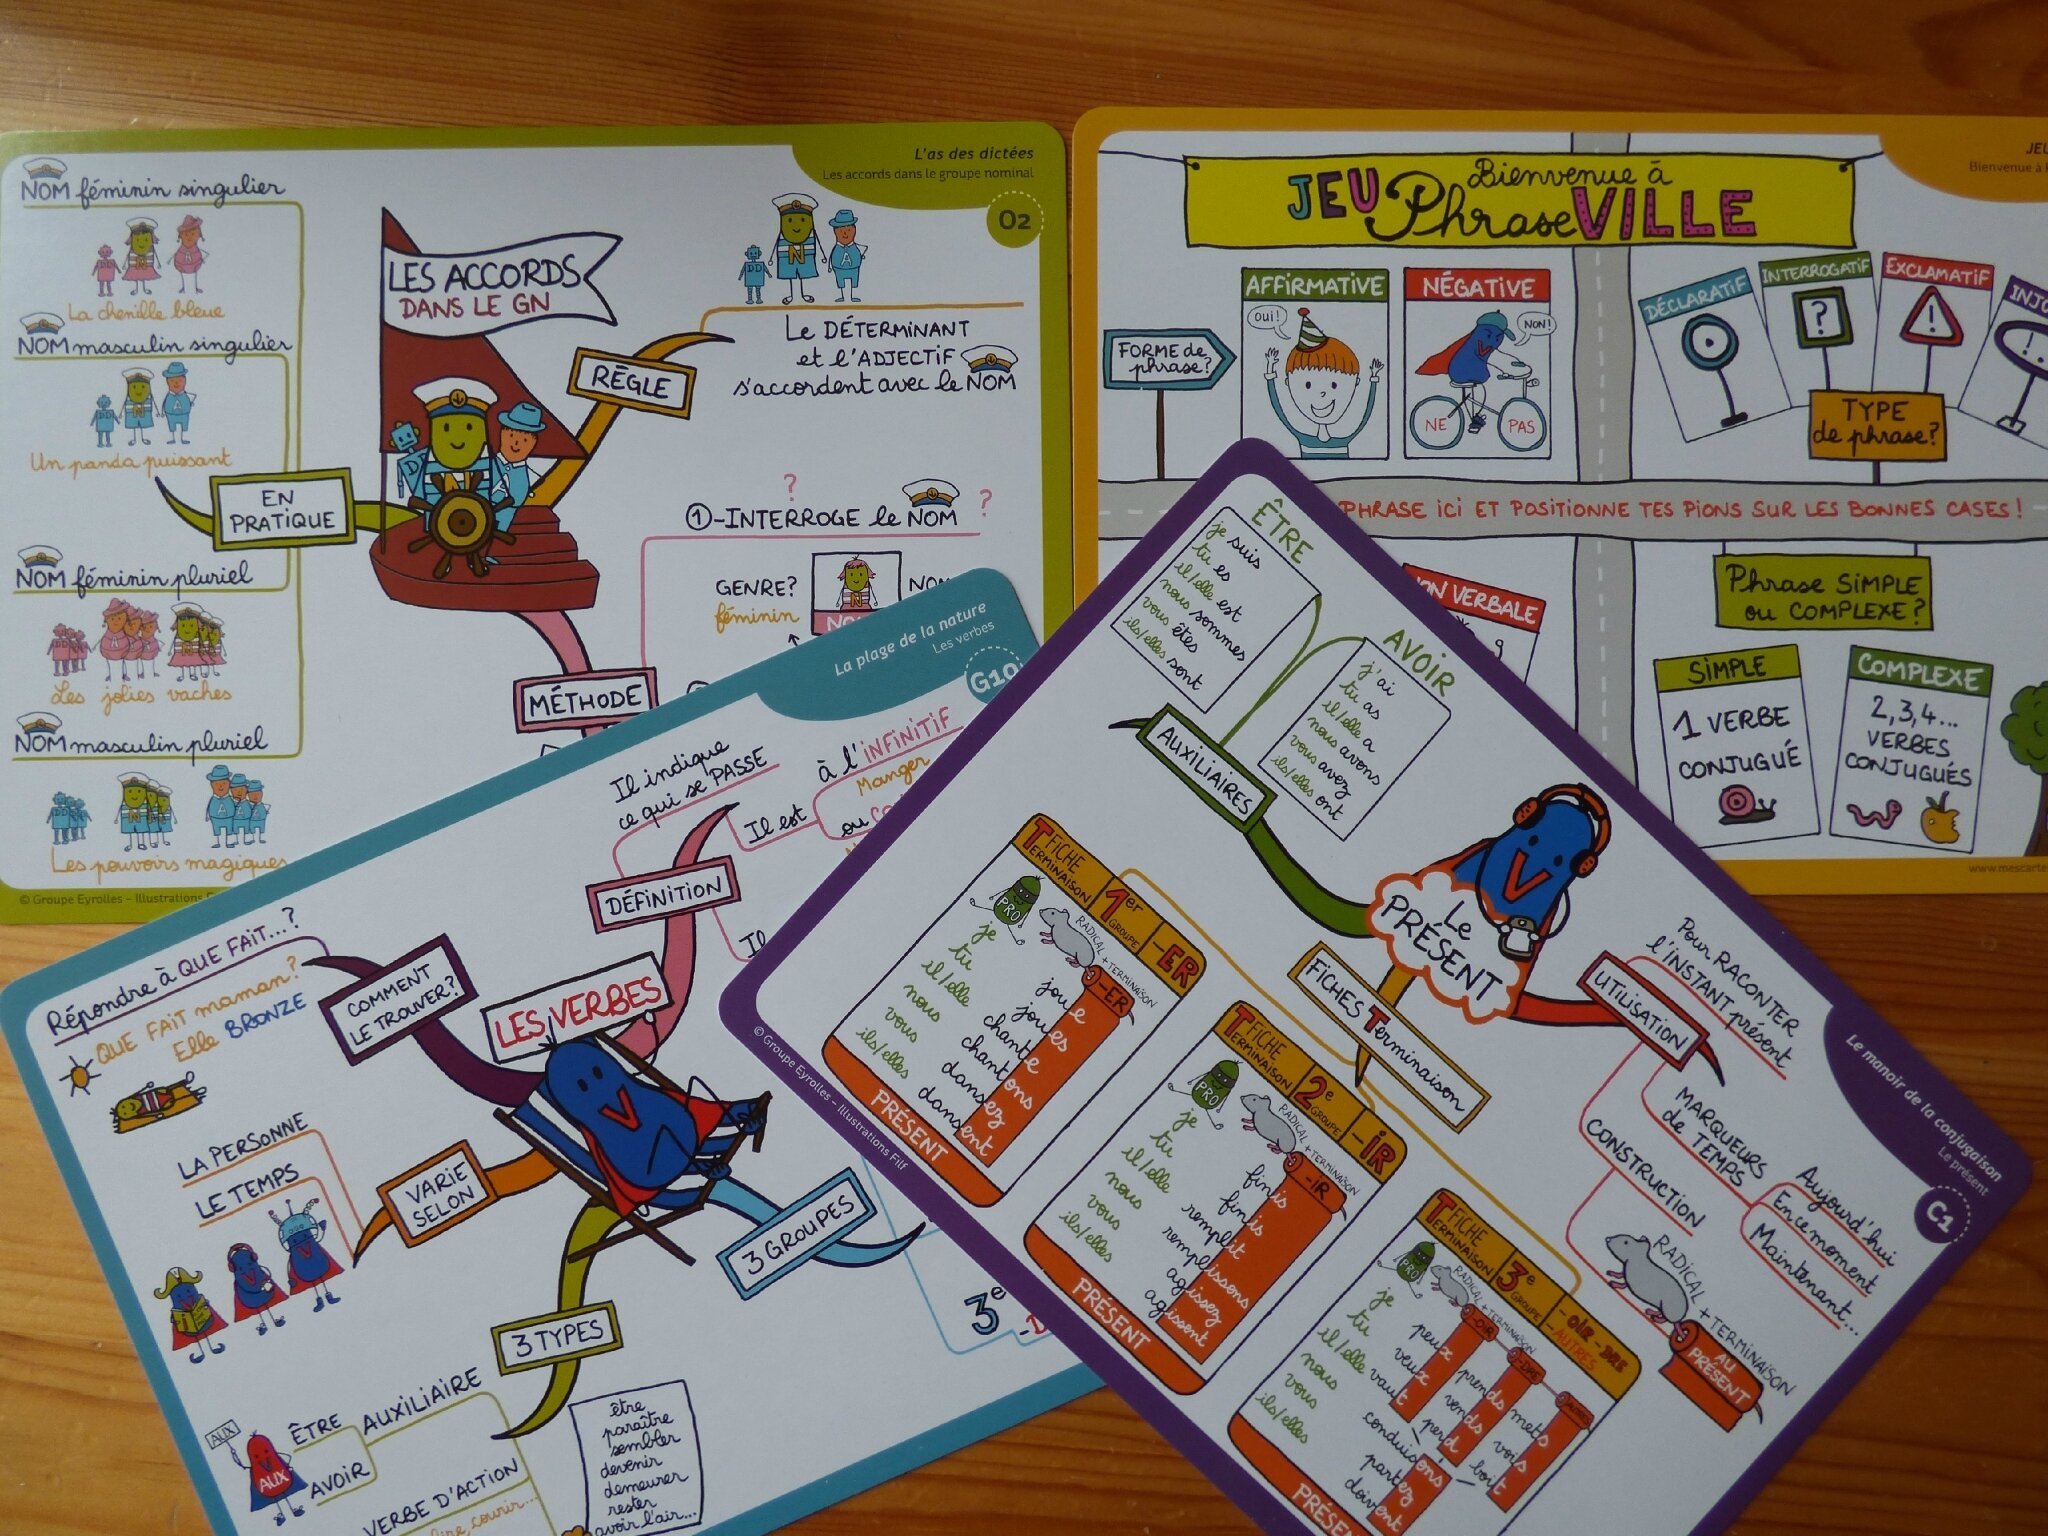 L'as des dictées
Les accords dans le groupe nominal
O2
NOM féminin singulier
La chenille bleue
NOM masculin singulier
Un panda puissant
EN
PRATIQUE
NOM féminin pluriel
Les jolies vaches
NOM masculin pluriel
Les pouvoirs magiques
© Groupe Eyrolles – Illustrations
LES ACCORDS
DANS LE GN
DD
N
A
RÈGLE
Le DÉTERMINANT
et l'ADJECTIF
s'accordent avec le NOM
? ?
①-INTERROGE le NOM
GENRE?
féminin
MÉTHODE
JEU Bienvenue à
PhraseVILLE
JEU
Bienvenue à
FORME de
phrase?
AFFIRMATIVE
OUI!
NÉGATIVE
NON!
NE PAS
DÉCLARATIF
INTERROGATIF
?
EXCLAMATIF
!
INJO
TYPE
de phrase?
PHRASE ICI ET POSITIONNE TES PIONS SUR LES BONNES CASES!
NON VERBALE
Phrase SIMPLE
ou COMPLEXE?
SIMPLE
1 VERBE
CONJUGUÉ
COMPLEXE
2, 3, 4...
VERBES
CONJUGUÉS
www.mescarte
La plage de la nature
Les verbes
G10
LES VERBES
V
DÉFINITION
Il indique
ce qui se PASSE
Il est
à l'INFINITIF
Manger
ou
Il
COMMENT
LE TROUVER?
Répondre à QUE FAIT...?
QUE FAIT maman?
Elle BRONZE
VARIE
SELON
LA PERSONNE
LE TEMPS
3 GROUPES
3e
3 TYPES
AUX
AUX
ÊTRE
AVOIR
AUXILIAIRE
VERBE D'ACTION
lire, courir...
être
paraître
sembler
devenir
demeurer
rester
avoir l'air...
Le manoir de la conjugaison
Le présent
C1
© Groupe Eyrolles – Illustrations Filf
Le
PRÉSENT
V
AUXILIAIRES
ÊTRE
je suis
tu es
il/elle est
nous sommes
vous êtes
ils/elles sont
AVOIR
j'ai
tu as
il/elle a
nous avons
vous avez
ils/elles ont
FICHES Terminaison
FICHE
TERMINAISON
1er
GROUPE
-ER
PRO
RADICAL + TERMINAISON
-ER
je joue
tu joues
il/elle chante
nous chantons
vous dansez
ils/elles dansent
PRÉSENT
FICHE
TERMINAISON
2e
GROUPE
-IR
PRO
RADICAL + TERMINAISON
-IR
je finis
tu finis
il/elle remplit
nous remplissons
vous agissez
ils/elles agissent
PRÉSENT
FICHE
TERMINAISON
3e
GROUPE
-OIR -DRE
-AUTRES
PRO
RADICAL + TERMINAISON
-OIR -DRE AUTRES
je peux prends mets
tu veux vends vois
il/elle vaut perd boit
nous conduisons
vous partez
ils/elles doivent
PRÉSENT
UTILISATION
Pour RACONTER
l'INSTANT présent
MARQUEURS
de TEMPS
Aujourd'hui
En ce moment
Maintenant...
CONSTRUCTION
RADICAL + TERMINAISON
AU
PRÉSENT